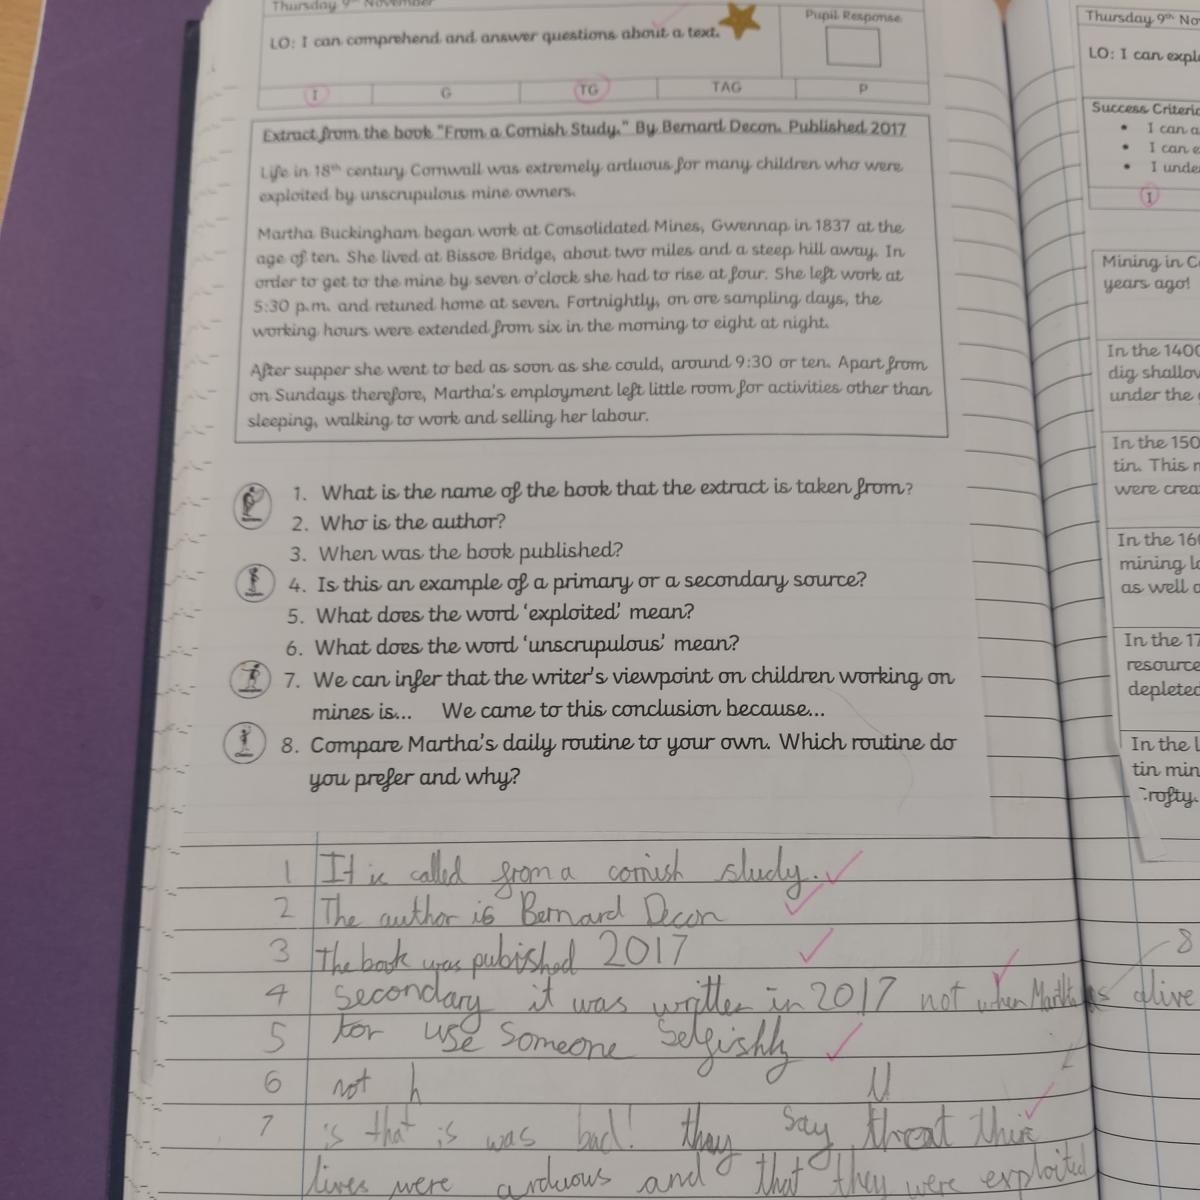 Thursday 9th November
LO: I can comprehend and answer questions about a text.
Pupil Response
I G TG TAG P
Extract from the book "From a Cornish Study." By Bernard Decon. Published 2017
Life in 18th century Cornwall was extremely arduous for many children who were
exploited by unscrupulous mine owners.
Martha Buckingham began work at Consolidated Mines, Gwennap in 1837 at the
age of ten. She lived at Bissoe Bridge, about two miles and a steep hill away. In
order to get to the mine by seven o'clock she had to rise at four. She left work at
5:30 p.m. and retuned home at seven. Fortnightly, on ore sampling days, the
working hours were extended from six in the morning to eight at night.
After supper she went to bed as soon as she could, around 9:30 or ten. Apart from
on Sundays therefore, Martha's employment left little room for activities other than
sleeping, walking to work and selling her labour.
1. What is the name of the book that the extract is taken from?
2. Who is the author?
3. When was the book published?
4. Is this an example of a primary or a secondary source?
5. What does the word 'exploited' mean?
6. What does the word 'unscrupulous' mean?
7. We can infer that the writer's viewpoint on children working on
mines is... We came to this conclusion because...
8. Compare Martha's daily routine to your own. Which routine do
you prefer and why?
1 It is called from a cornish study.
2 The author is Bernard Decon
3 The book was pubished 2017
4 secondary it was written in 2017 not when Martha is alive
5 for use someone selfishly
6 not h
7 is that is was bad! they say threat thir
lives were arduous and that they were exploited
Thursday 9th No
LO: I can expl
Success Criteri
• I can a
• I can e
• I unde
I
Mining in C
years ago!
In the 1400
dig shallow
under the
In the 150
tin. This
were crea
In the 160
mining lo
as well
In the 17
resource
depleted
In the l
tin min
Crofty.
8